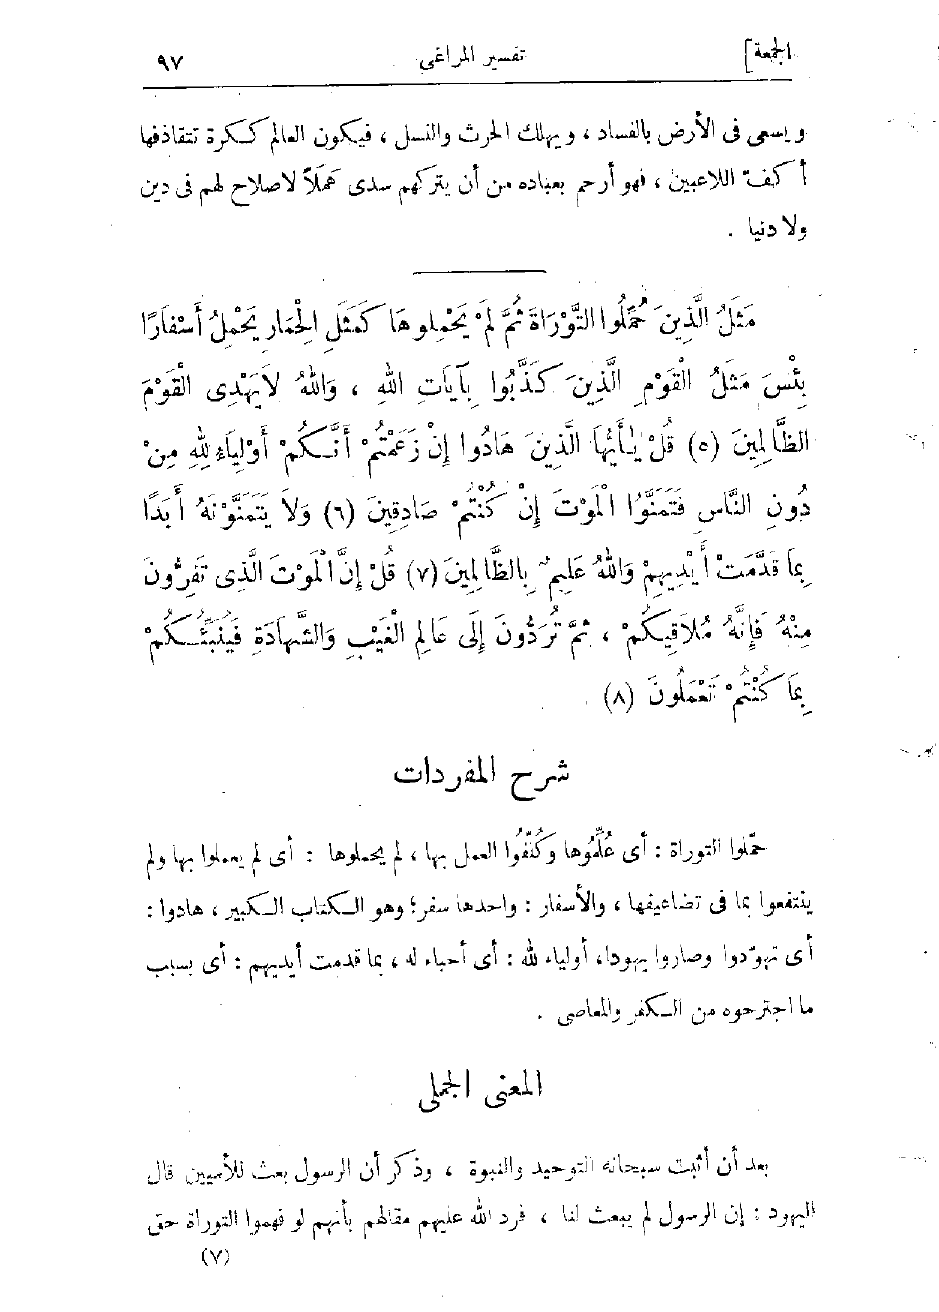 الجمعة] تفسير المراغى ٩٧
ويسعى فى الأرض بالفساد ، ويهلك الحرث والنسل ، فيكون العالم ككرة تتقاذفها
أكفّ اللاعبين ، فهو أرحم بعباده من أن يتركهم سدى هَمَلاً لاصلاح لهم فى دين
ولا دنيا .
مَثَلُ الَّذِينَ حُمِّلُوا التَّوْرَاةَ ثُمَّ لَمْ يَحْمِلوهَا كَمَثَلِ الْحِمَارِ يَحْمِلُ أَسْفَارًا
بِئْسَ مَثَلُ الْقَوْمِ الَّذِينَ كَذَّبُوا بِآيَاتِ اللهِ ، وَاللهُ لاَ يَهْدِى الْقَوْمَ
الظَّالِمِينَ (٥) قُلْ يٰأَيُّهَا الَّذِينَ هَادُوا إِنْ زَعَمْتُمْ أَنَّكُمْ أَوْلِيَاءُ لِلهِ مِنْ
دُونِ النَّاسِ فَتَمَنَّوُا الْمَوْتَ إِنْ كُنْتُمْ صَادِقِينَ (٦) وَلاَ يَتَمَنَّوْنَهُ أَبَدًا
بِمَا قَدَّمَتْ أَيْدِيهِمْ وَاللهُ عَلِيمٌ بِالظَّالِمِينَ (٧) قُلْ إِنَّ الْمَوْتَ الَّذِى تَفِرُّونَ
مِنْهُ فَإِنَّهُ مُلاَقِيكُمْ ، ثُمَّ تُرَدُّونَ إِلَى عَالِمِ الْغَيْبِ وَالشَّهَادَةِ فَيُنَبِّئُكُمْ
بِمَا كُنْتُمْ تَعْمَلُونَ (٨)
شرح المفردات
حمّلوا التوراة : أى عُلِّمُوها وكُلّفُوا العمل بها ، لم يحملوها : أى لم يعملوا بها ولم
ينتفعوا بما فى تضاعيفها ، والأسفار : واحدها سفر؛ وهو الكتاب الكبير ، هادوا :
أى تهوّدوا وصاروا يهودا، أولياء لله : أى أحباء له ، بما قدمت أيديهم : أى بسبب
ما اجترحوه من الكفر والمعاصى .
المعنى الجملى
بعد أن أثبت سبحانه التوحيد والنبوة ، وذكر أن الرسول بعث للأميين قال
اليهود : إن الرسول لم يبعث لنا ، فرد الله عليهم مقالهم بأنهم لو فهموا التوراة حق
(٧)